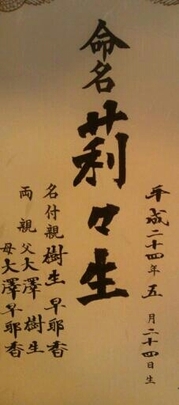 命名
莉々生
平成二十四年五月二十四日生
名付親 樹生 早耶香
両親 父 大澤 樹生
母 大澤早耶香